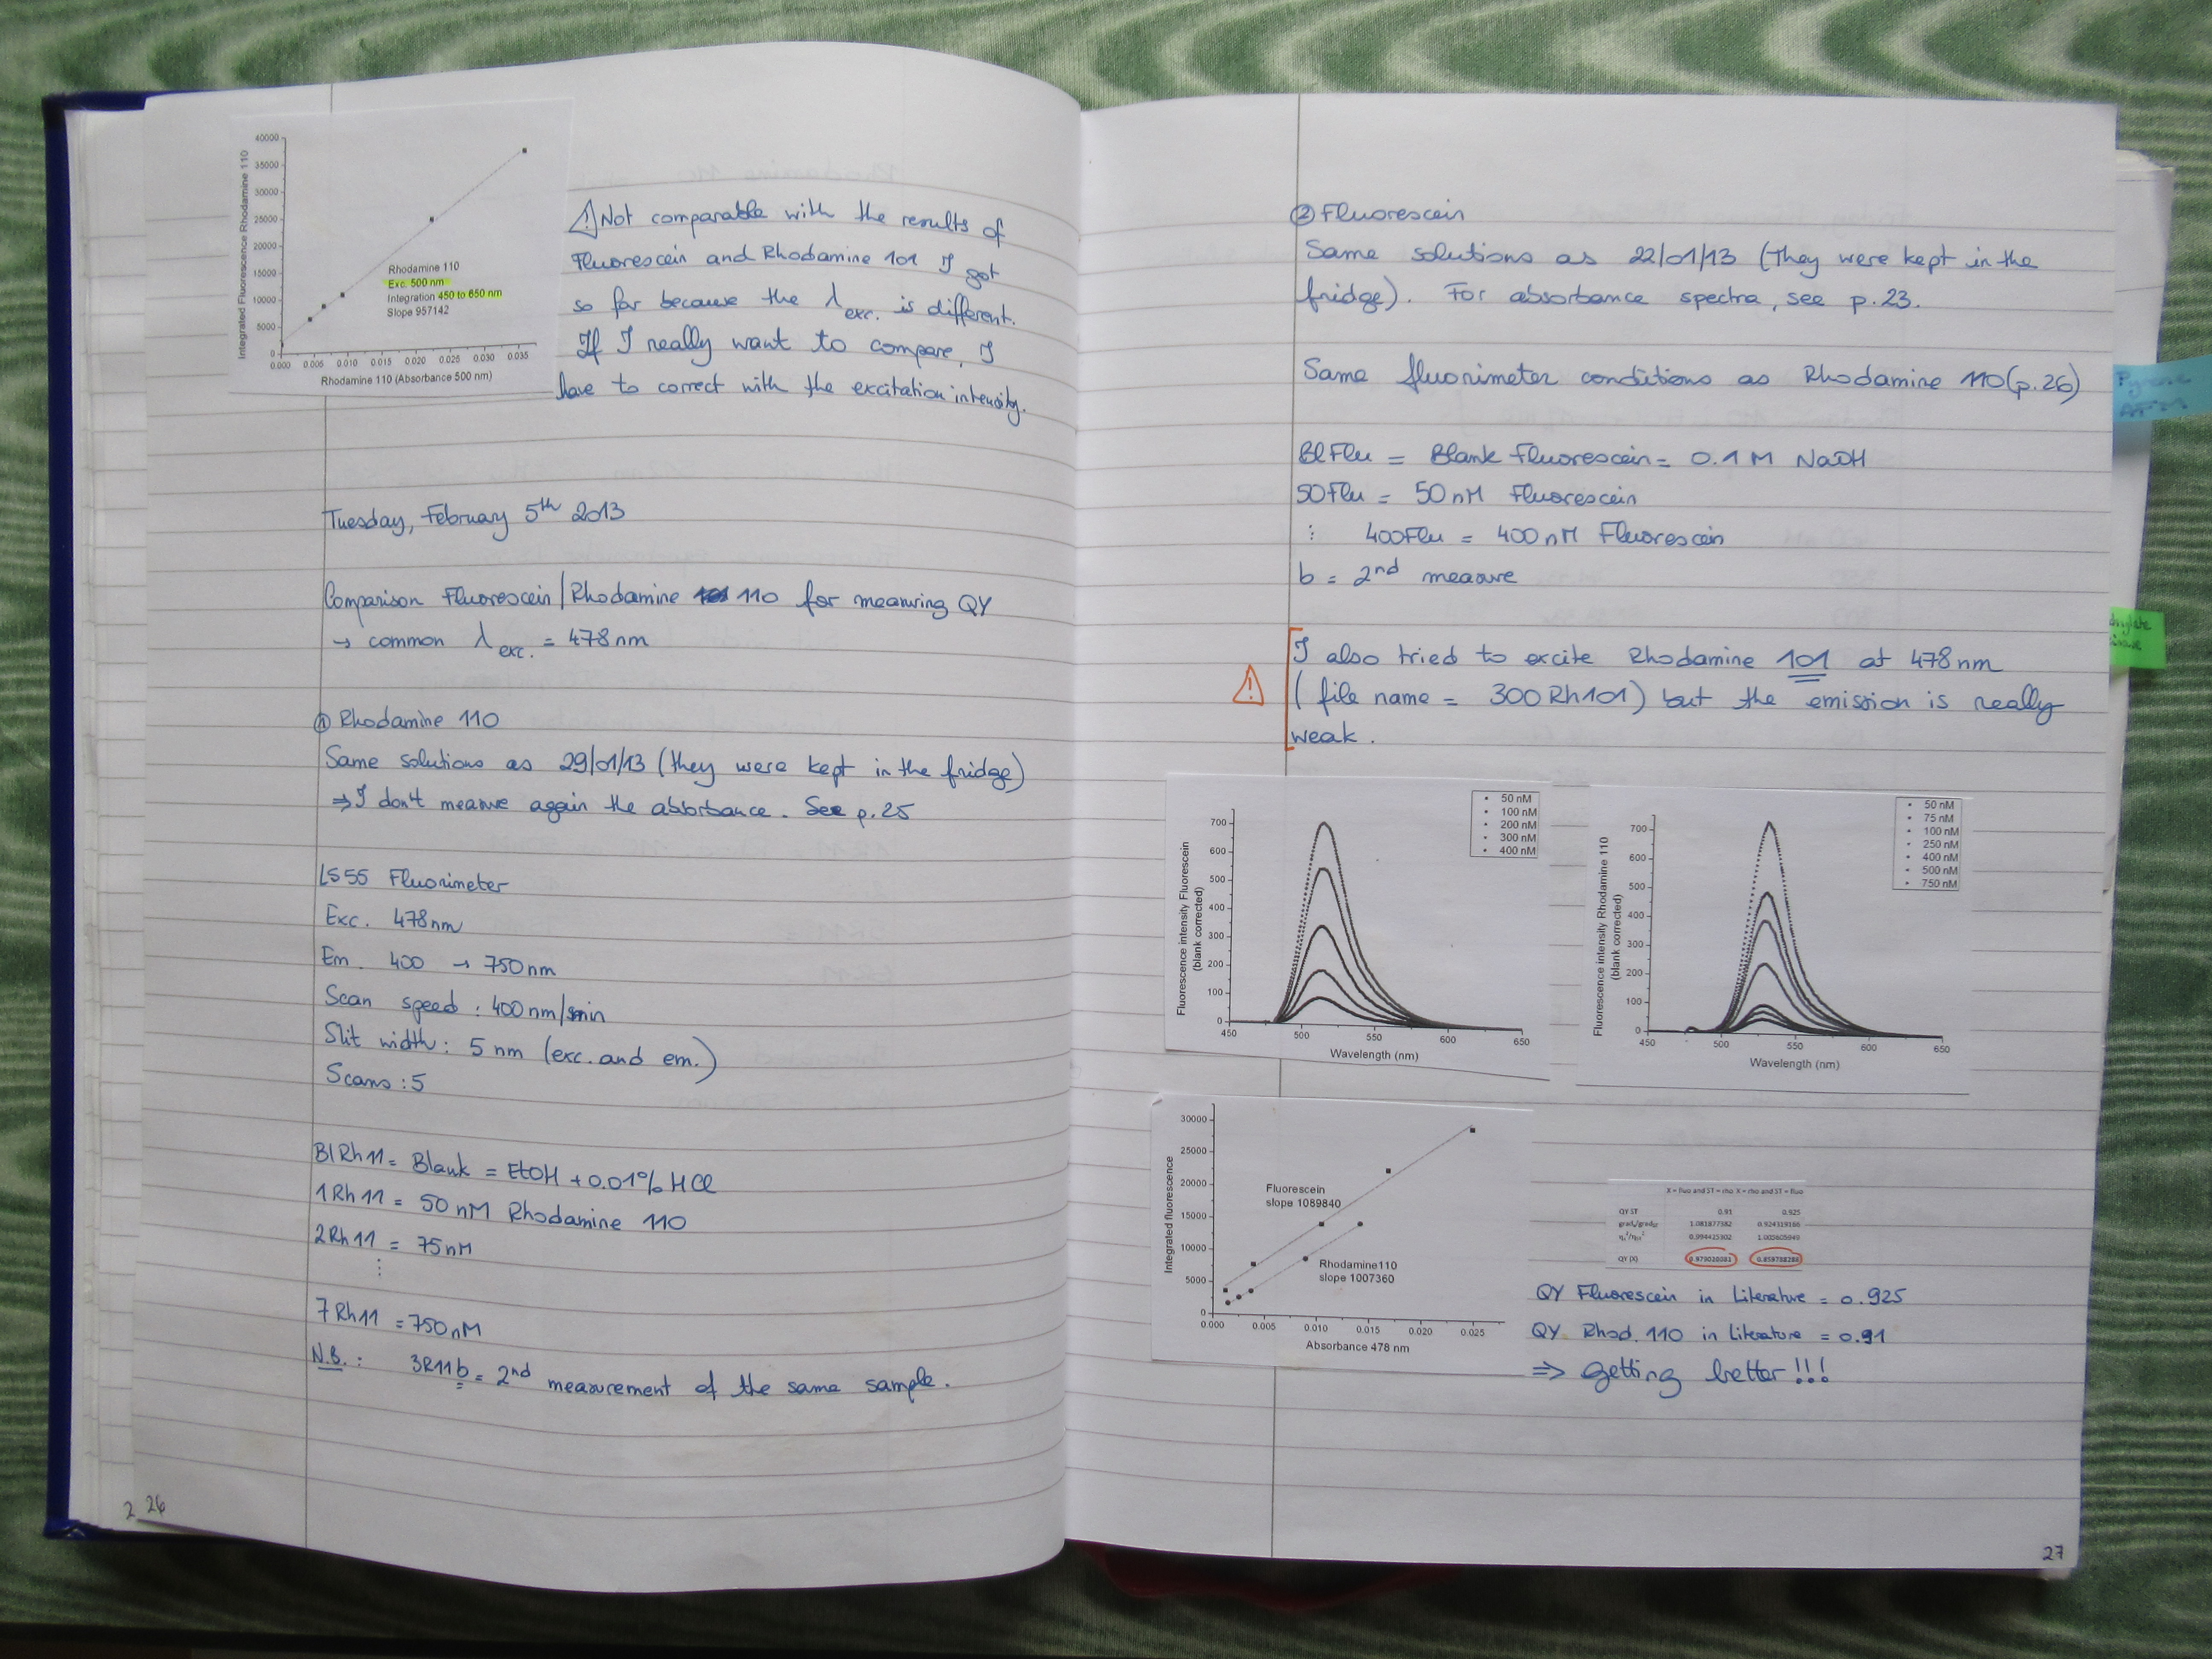 40000
35000
30000
25000
20000
15000
10000
5000
0
0.000 0.005 0.010 0.015 0.020 0.025 0.030 0.035
Integrated Fluorescence Rhodamine 110
Rhodamine 110 (Absorbance 500 nm)
Rhodamine 110
Exc. 500 nm
Integration 450 to 650 nm
Slope 957142
Not comparable with the results of
Fluorescein and Rhodamine 101 I got
so far because the λ exc. is different.
If I really want to compare, I
have to correct with the excitation intensity.
Tuesday, February 5th 2013
Comparison Fluorescein/Rhodamine 110 for measuring QY
→ common λ exc. = 478 nm
① Rhodamine 110
Same solutions as 29/01/13 (they were kept in the fridge)
⇒ I don't measure again the absorbance. See p.25
LS55 Fluorimeter
Exc. 478nm
Em. 400 → 750nm
Scan speed : 400 nm/min
Slit width : 5 nm (exc. and em.)
Scans : 5
BlRh11 = Blank = EtOH + 0.01% HCl
1Rh11 = 50 nM Rhodamine 110
2Rh11 = 75nM
⋮
7Rh11 = 750nM
N.B. : 3R11b = 2nd measurement of the same sample.
26
② Fluorescein
Same solutions as 22/01/13 (They were kept in the
fridge). For absorbance spectra, see p.23.
Same fluorimeter conditions as Rhodamine 110 (p.26)
BlFlu = Blank Fluorescein = 0.1 M NaOH
50Flu = 50 nM Fluorescein
⋮ 400Flu = 400 nM Fluorescein
b = 2nd measure
I also tried to excite Rhodamine 101 at 478nm
( file name = 300Rh101) but the emission is really
weak.
700
600
500
400
300
200
100
0
450 500 550 600 650
Fluorescence intensity Fluorescein
(blank corrected)
Wavelength (nm)
50 nM
100 nM
200 nM
300 nM
400 nM
700
600
500
400
300
200
100
0
450 500 550 600 650
Fluorescence intensity Rhodamine 110
(blank corrected)
Wavelength (nm)
50 nM
75 nM
100 nM
250 nM
400 nM
500 nM
750 nM
30000
25000
20000
15000
10000
5000
0
0.000 0.005 0.010 0.015 0.020 0.025
Integrated fluorescence
Absorbance 478 nm
Fluorescein
slope 1089840
Rhodamine110
slope 1007360
X = fluo and ST = rho X = rho and ST = fluo
QY ST 0.91 0.925
1.081877382 0.924319166
0.994425302
QY (X)
QY Fluorescein in Literature = 0.925
QY Rhod. 110 in Literature = 0.91
⇒ getting better!!!
27